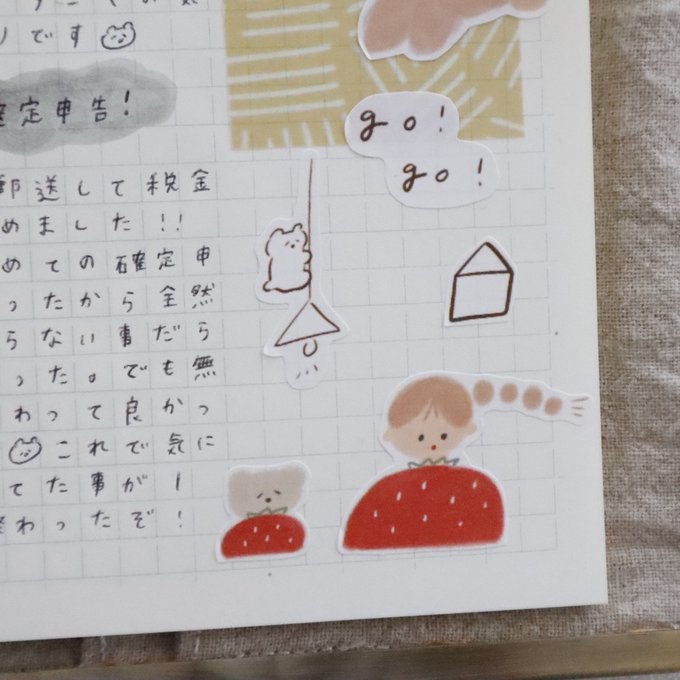 りです
確定申告!
郵送して税金
めました!!
めての確定申
ったから全然
らない事だら
った。でも無
わって良かっ
これで気に
てた事が1
終わったぞ!
go!
go!